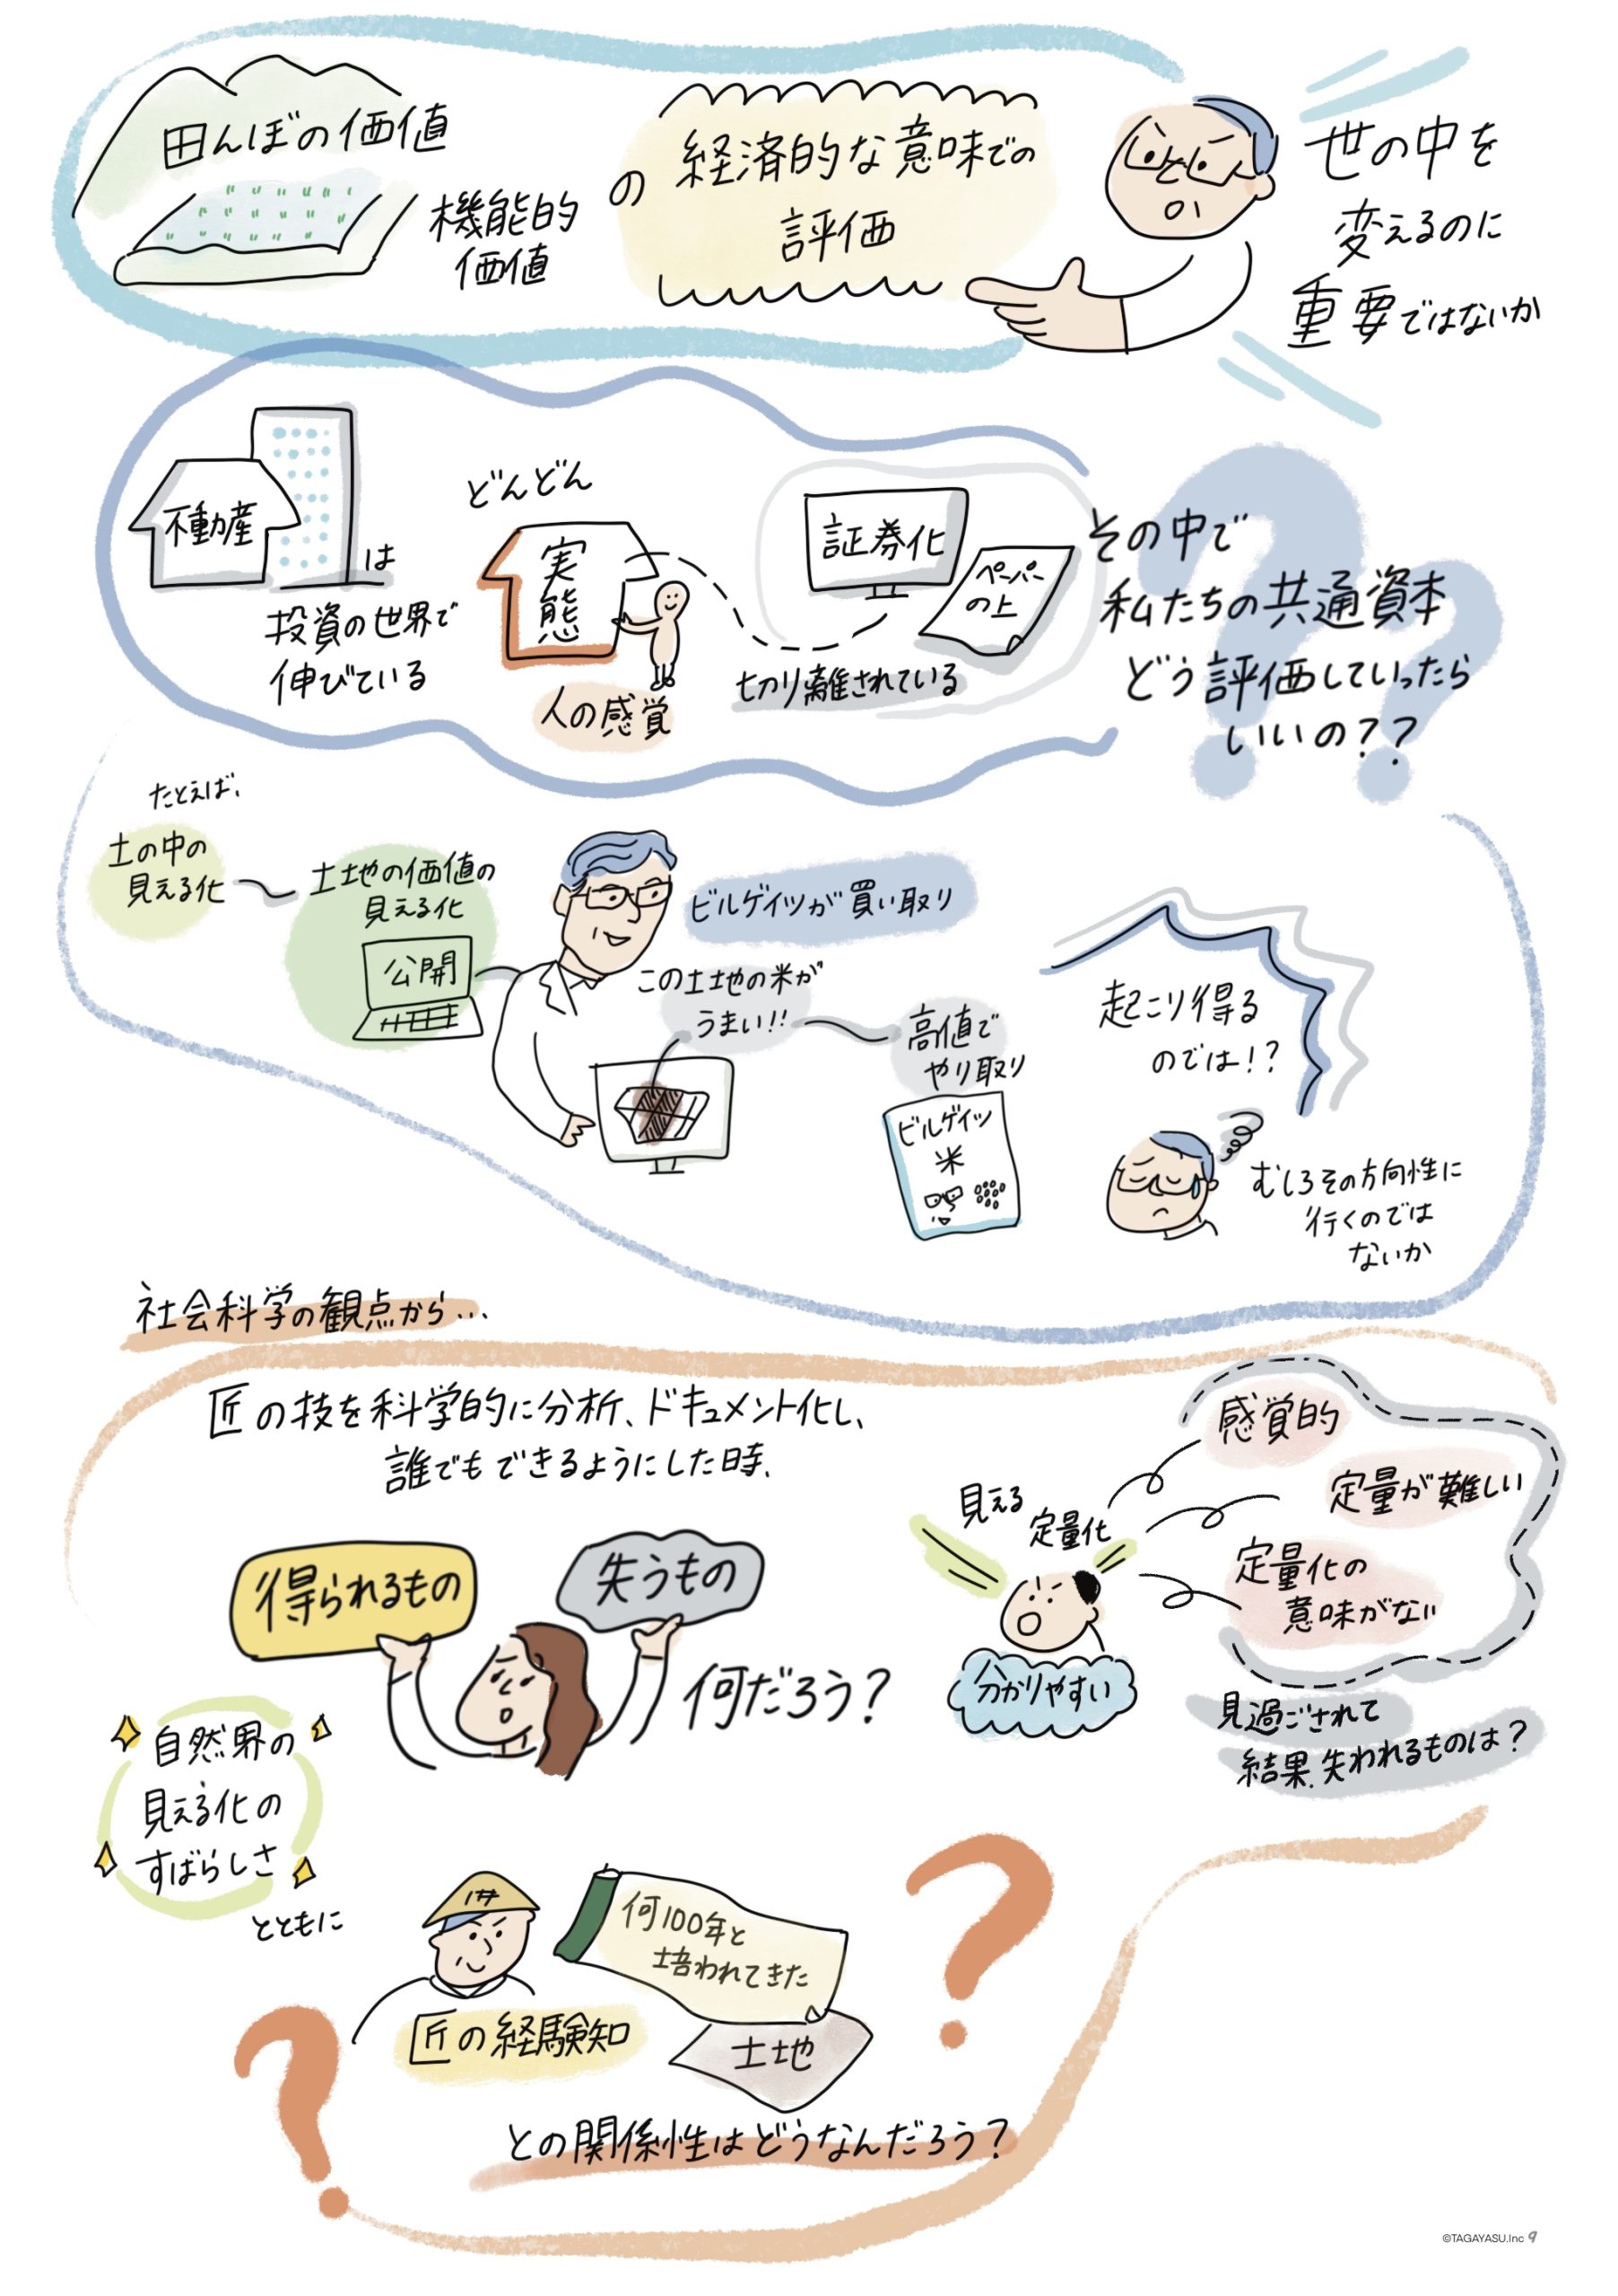 田んぼの価値
機能的
価値
の
経済的な意味での
評価
世の中を
変えるのに
重要ではないか
不動産
は
投資の世界で
伸びている
どんどん
実態
人の感覚
証券化
ペーパー
の上
切り離されている
その中で
私たちの共通資本
どう評価していったら
いいの??
たとえば、
土の中の
見える化
土地の価値の
見える化
公開
ビルゲイツが買い取り
この土地の米が
うまい!!
高値で
やり取り
ビルゲイツ
米
起こり得る
のでは!?
むしろその方向性に
行くのでは
ないか
社会科学の観点から...
匠の技を科学的に分析、ドキュメント化し、
誰でもできるようにした時、
得られるもの
失うもの
何だろう?
見える
定量化
分かりやすい
感覚的
定量が難しい
定量化の
意味がない
見過ごされて
結果、失われるものは?
自然界の
見える化の
すばらしさ
とともに
匠の経験知
何100年と
培われてきた
土地
との関係性はどうなんだろう?
©TAGAYASU.Inc 9